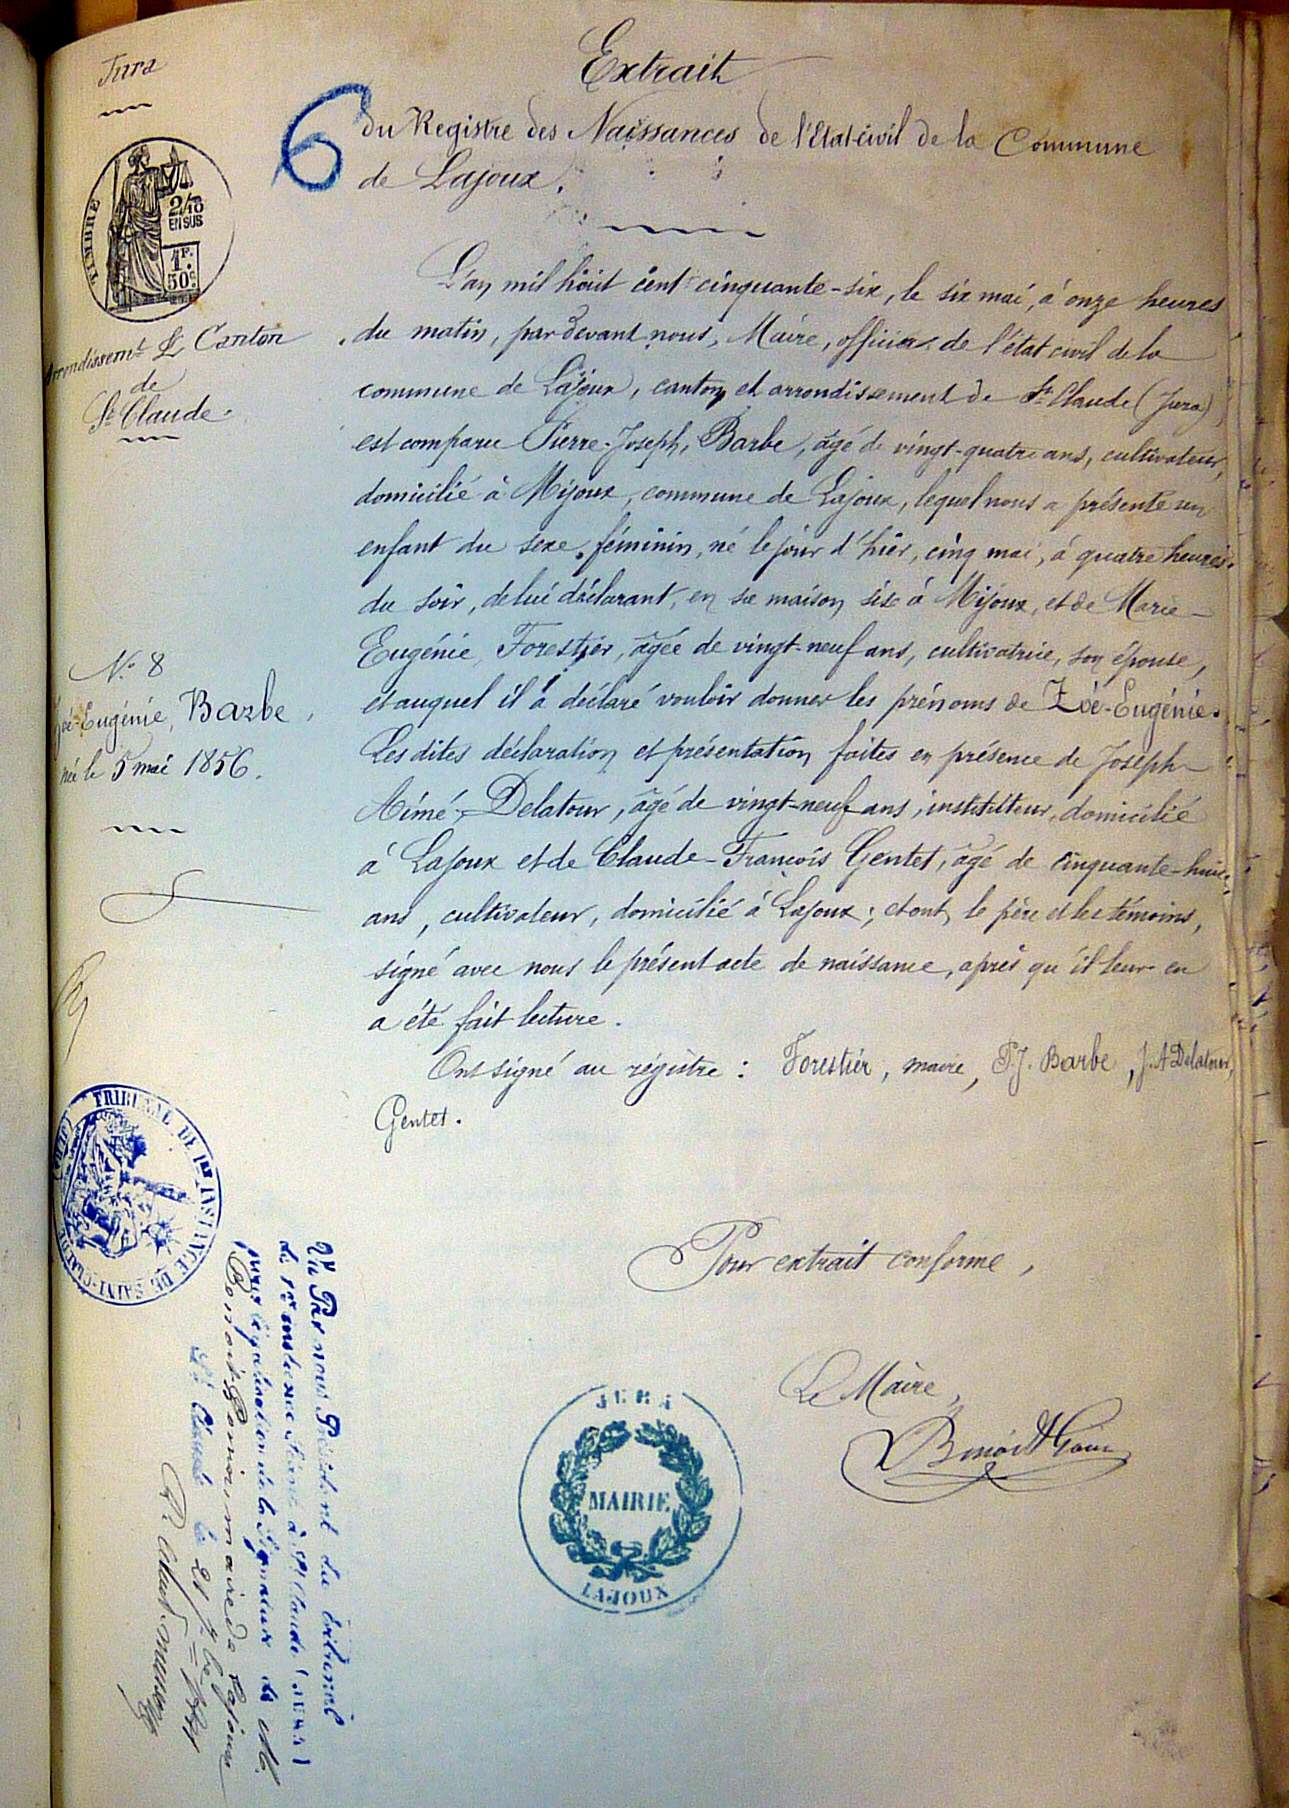 Jura
Extrait
6
du Registre des Naissances de l'Etat-civil de la Commune
de Lajoux.
TIMBRE
2/10
EN SUS
1F.
50c.
Arrondissemt & Canton
de
St Claude.
L'an mil huit cent cinquante-six, le six mai, à onze heures
du matin, par devant nous, Maire, officier de l'état civil de la
commune de Lajoux, canton et arrondissement de St Claude (Jura),
est comparu Pierre-Joseph, Barbe, âgé de vingt-quatre ans, cultivateur,
domicilié à Mijoux, commune de Lajoux, lequel nous a présenté un
enfant du sexe féminin, né le jour d'hier, cinq mai, à quatre heures
du soir, de lui déclarant, en sa maison sise à Mijoux, et de Marie-
Eugénie, Forestier, âgée de vingt-neuf ans, cultivatrice, son épouse,
et auquel il a déclaré vouloir donner les prénoms de Zoé-Eugénie.
Les dites déclaration et présentation faites en présence de Joseph-
Aimé, Delatour, âgé de vingt-neuf ans, instituteur, domicilié
à Lajoux et de Claude-François Gentet, âgé de cinquante-huit
ans, cultivateur, domicilié à Lajoux; et ont, le père et les témoins,
signé avec nous le présent acte de naissance, après qu'il leur en
a été fait lecture.
Ont signé au régistre : Forestier, maire, P.J. Barbe, J.A Delatour,
Gentet.
No 8
Zoé-Eugénie, Barbe,
née le 5 mai 1856.
Pour extrait conforme,
Le Maire,
Benoit Gonin
JURA
MAIRIE
LAJOUX
TRIBUNAL DE 1RE INSTANCE DE SAINT-CLAUDE
Vu Par nous Président du tribunal
de 1re instance séant à St Claude (Jura)
pour légalisation de la signature de M.
Benoit-Gonin maire de Lajoux
St Claude le 21